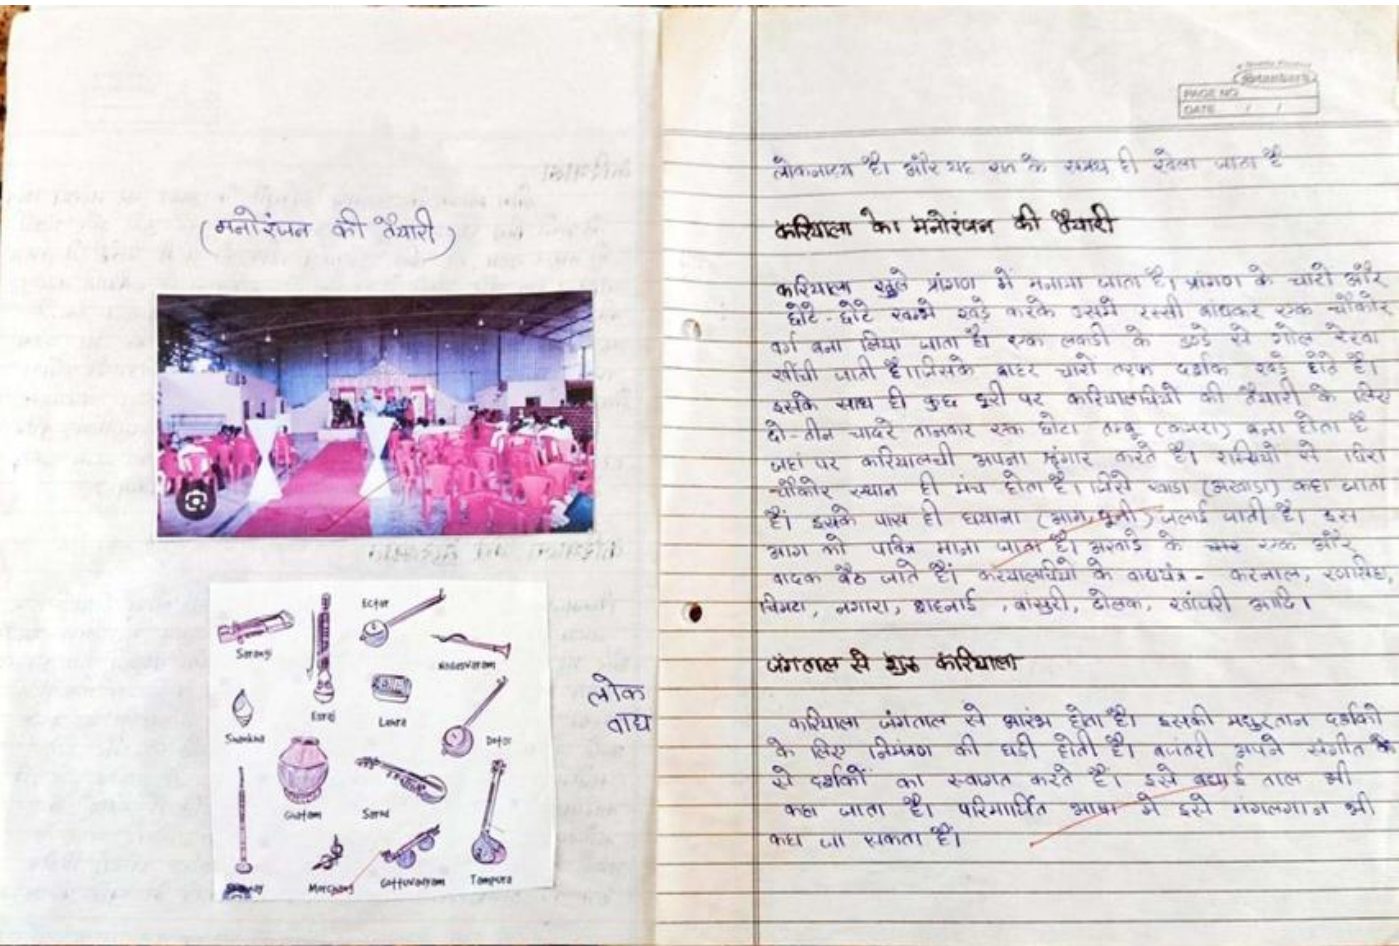 (मनोरंजन की तैयारी)
Sarangi
Ectar
Nadesvaram
Esraj
Sankha
Dotar
Ghatam
Sarod
Morchang
Gottuvadyam
Tampura
लोक
वाद्य
PAGE NO
DATE / /
लोकनाट्य है। और यह रात के समय ही खेला जाता है
करियाला का मनोरंजन की तैयारी
करियाला खुले प्रांगण में मनाया जाता है। प्रांगण के चारों और
छोटे-छोटे खम्भे खड़े करके उसमे रस्सी बांधकर एक चौकोर
वर्ग बना लिया जाता है। एक लकडी के डण्डे से गोल रेखा
खींची जाती है। जिसके बाहर चारों तरफ दर्शक खड़े होते है।
इसके साथ ही कुछ दूरी पर करियालचियों की तैयारी के लिए
दो-तीन चादरे तानकर एक छोटा तम्बू (कमरा) बना होता है
जहां पर करियालची अपना श्रृंगार करते है। रस्सियों से घिरा
चौकोर स्थान ही मंच होता है। जिसे खाडा (अखाडा) कहा जाता
है। इसके पास ही घयाना (आग, धूनी) जलाई जाती है। इस
आग को पवित्र माना जाता है। अखाडे के एक और
वादक बैठ जाते हैं। करियालचियो के वाद्ययंत्र - करनाल, रणसिंघा,
चिमटा, नगारा, शहनाई, बांसुरी, ढोलक, खंजरी आदि।
जंगताल से शुरू करियाला
करियाला जंगताल से आरंभ होता है। इसकी मधुरतान दर्शको
के लिए निमंत्रण की घडी होती है। बजंतरी अपने संगीत के
से दर्शकों का स्वागत करते हैं। इसे बधाई ताल भी
कहा जाता है। परिमार्जित भाषा मे इसे मंगलगान भी
कहा जा सकता है।